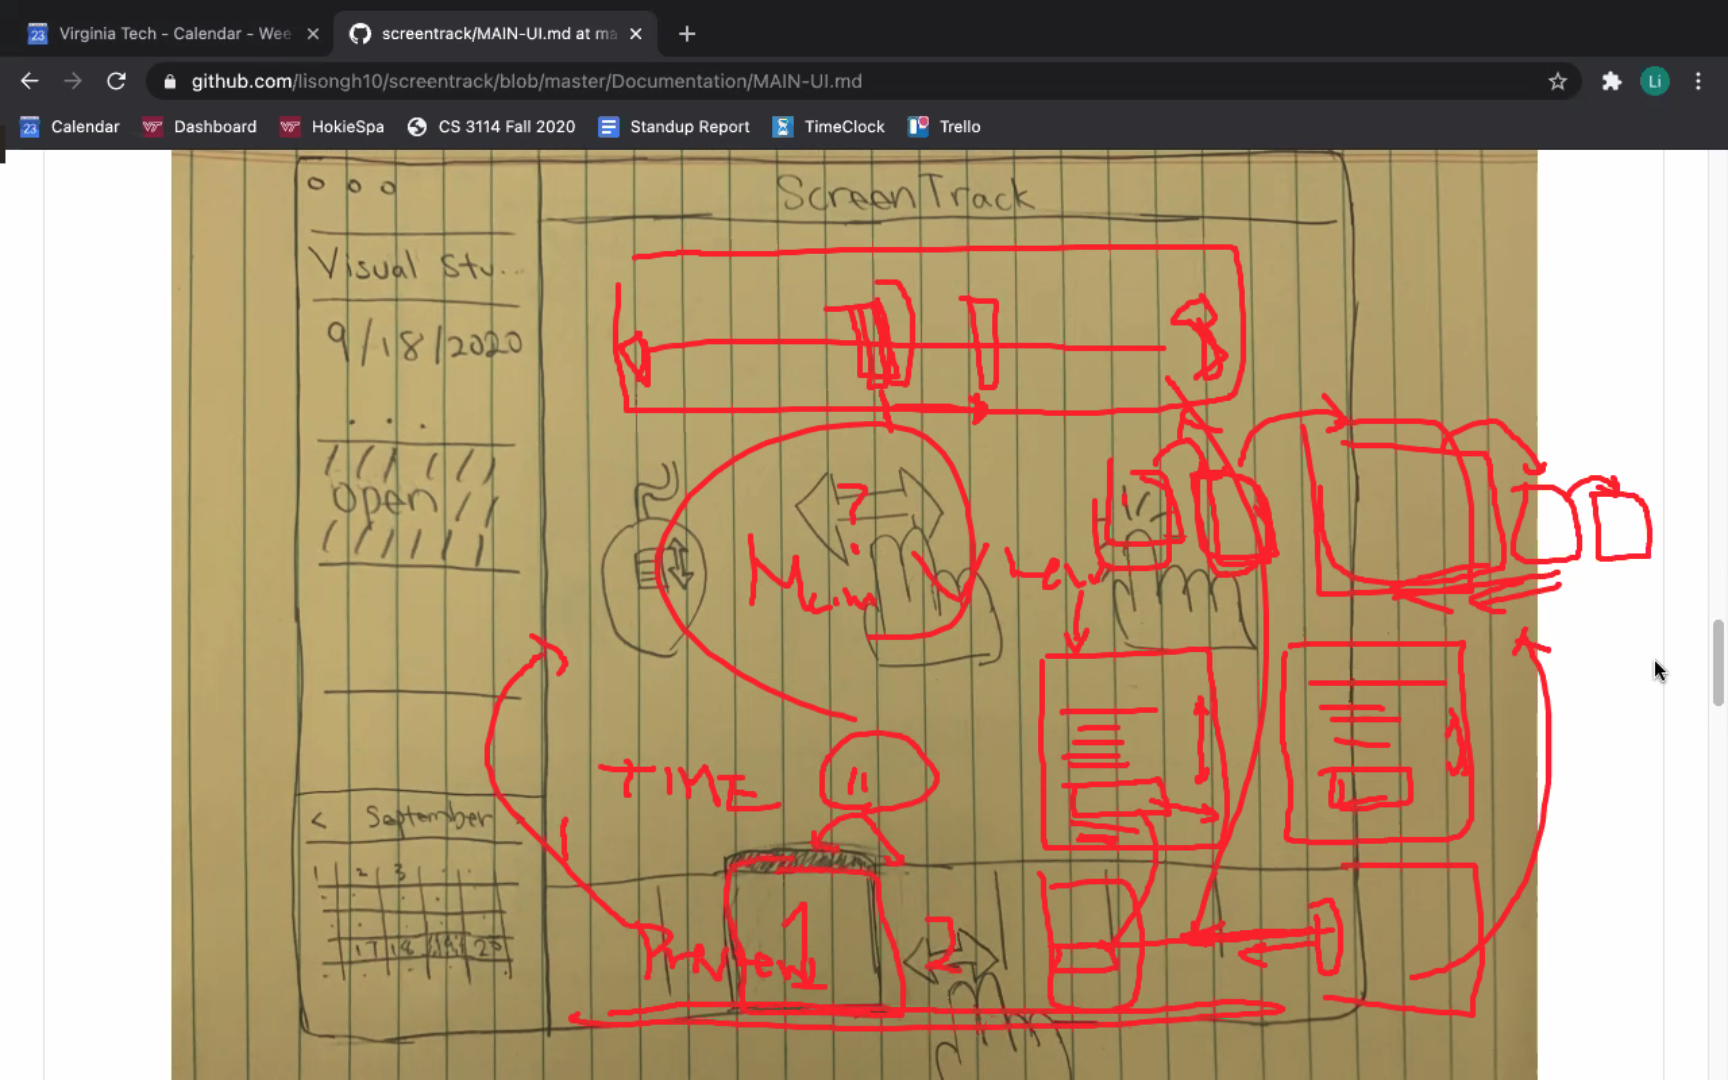 Virginia Tech - Calendar - Wee
screentrack/MAIN-UI.md at ma
github.com/lisongh10/screentrack/blob/master/Documentation/MAIN-UI.md
Li
23 Calendar
Dashboard
HokieSpa
CS 3114 Fall 2020
Standup Report
TimeClock
Trello
ScreenTrack
Visual Stu...
9/18/2020
. . .
Open
?
Main
TIME
11
< September >
1 2 3
17 18 19 20
Preview
1
2